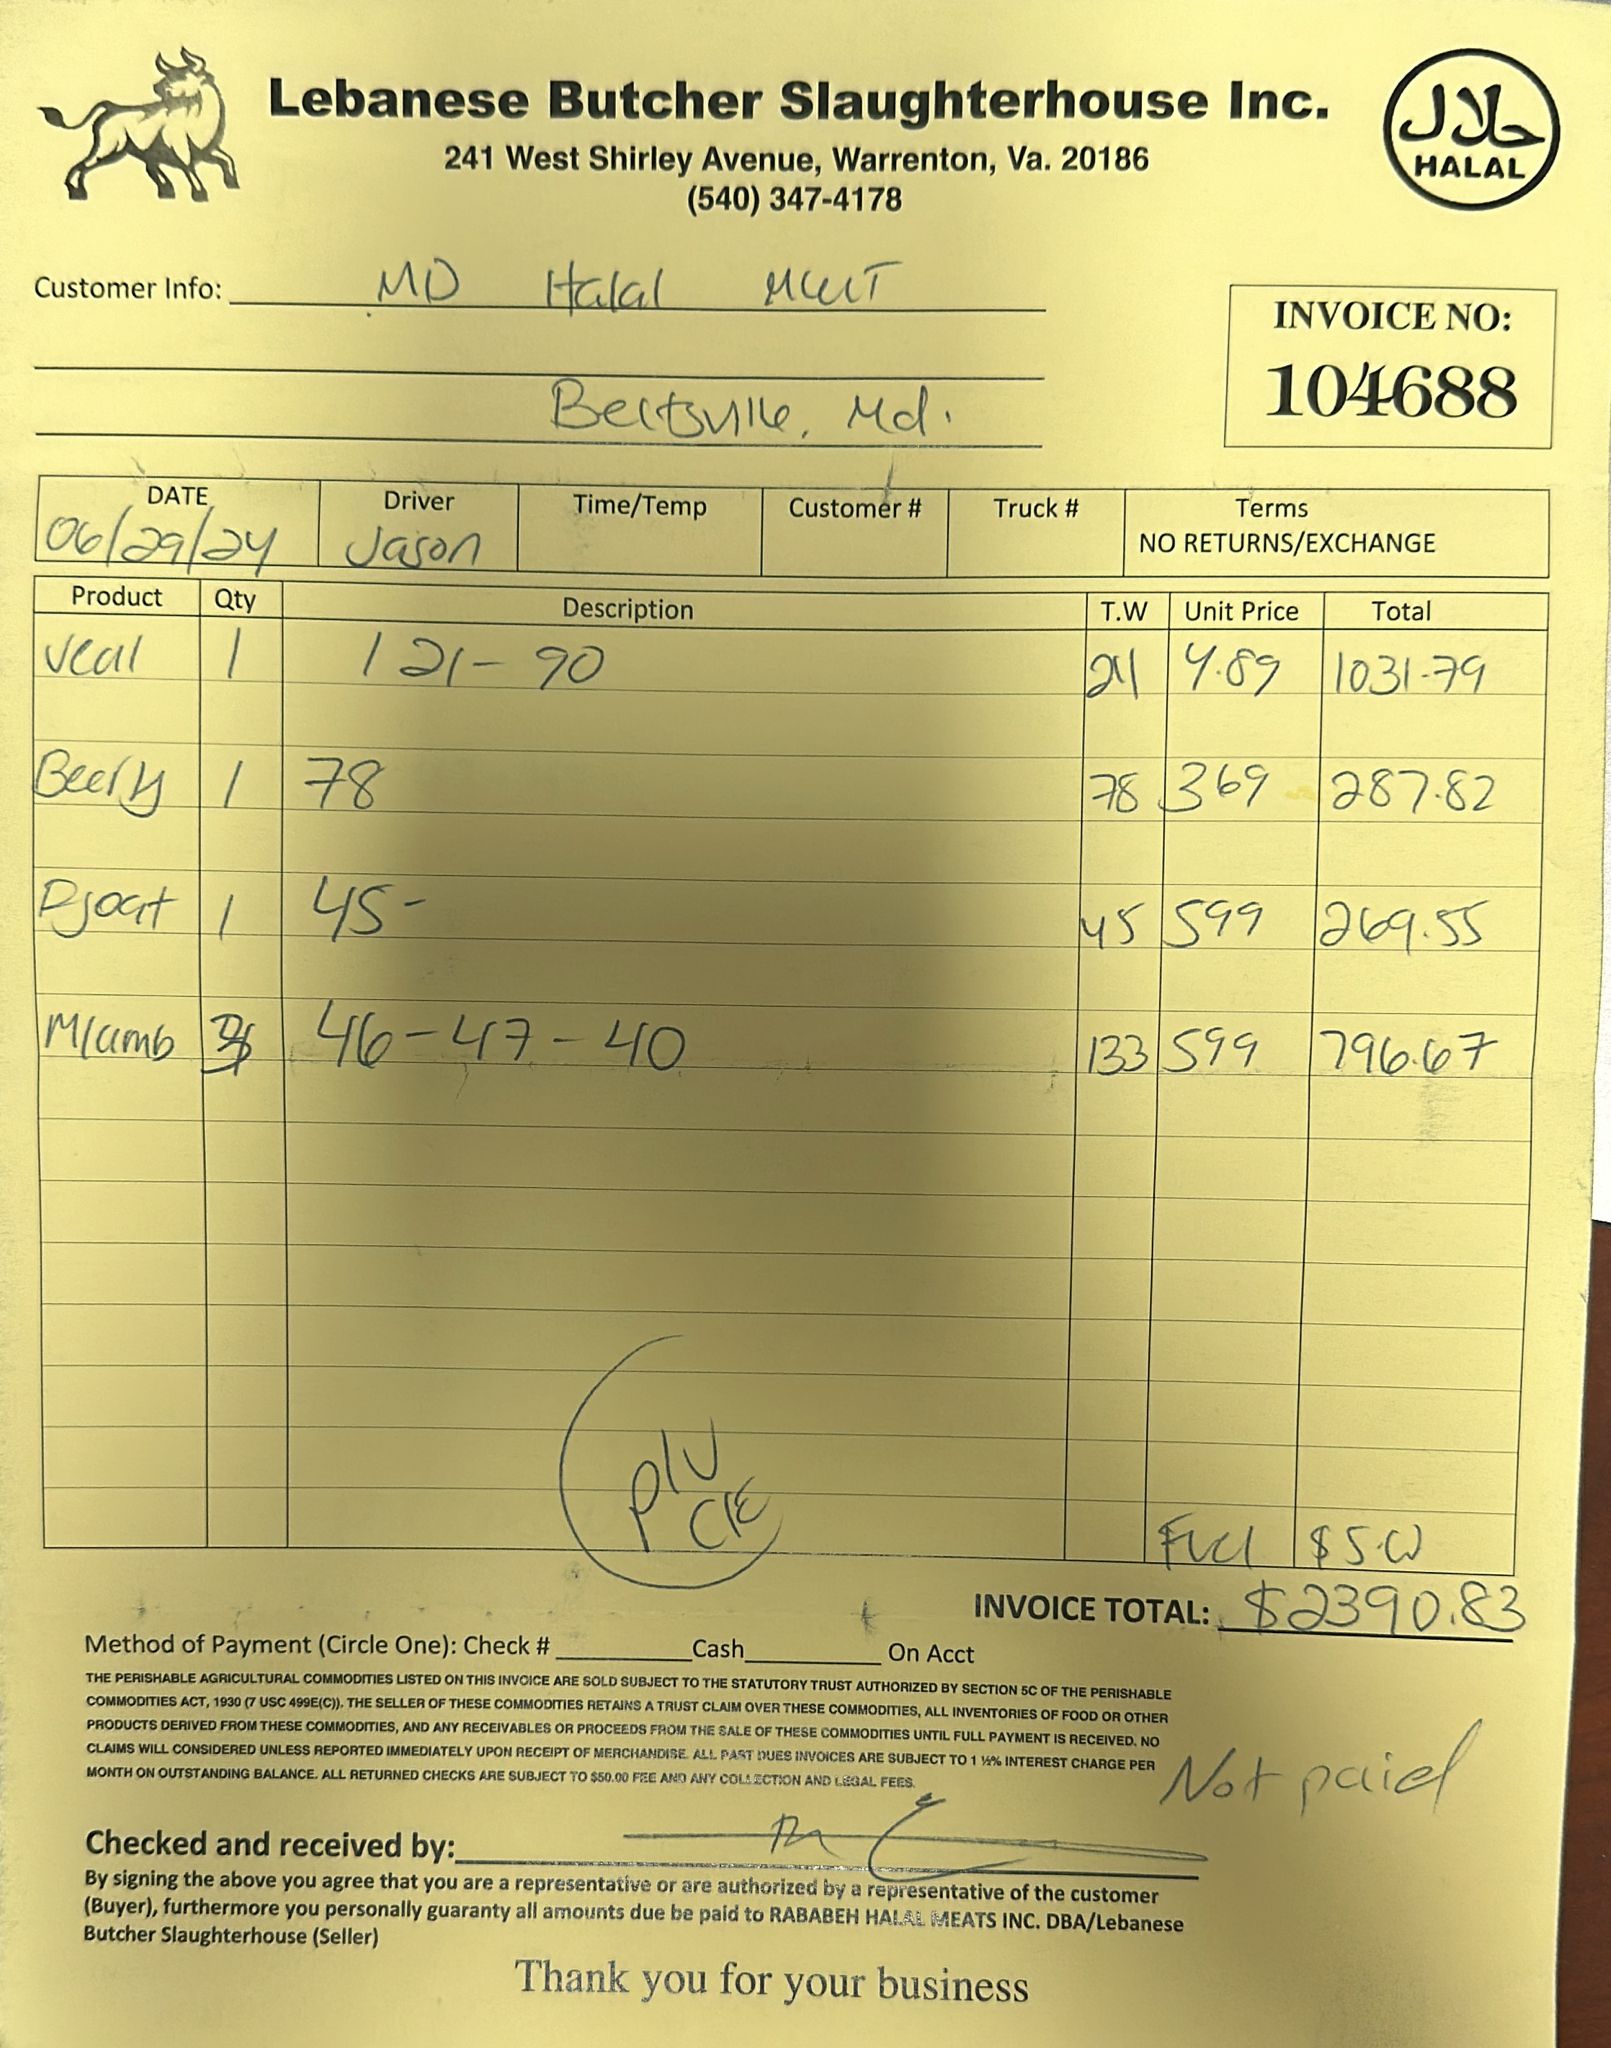 Lebanese Butcher Slaughterhouse Inc.
241 West Shirley Avenue, Warrenton, Va. 20186
(540) 347-4178
حلال
HALAL
Customer Info: MD Halal Meat
INVOICE NO:
104688
Beltsville, Md.
DATE Driver Time/Temp Customer # Truck # Terms
06/29/24 Jason NO RETURNS/EXCHANGE
Product Qty Description T.W Unit Price Total
Veal 1 121-90 211 4.89 1031.79
1 78 78 369 287.82
1 45- 45 599 269.55
M/lamb 46-47-40 133 599 796.67
P/U
Fuel $5.00
INVOICE TOTAL: $2390.83
Method of Payment (Circle One): Check # Cash On Acct
THE PERISHABLE AGRICULTURAL COMMODITIES LISTED ON THIS INVOICE ARE SOLD SUBJECT TO THE STATUTORY TRUST AUTHORIZED BY SECTION 5C OF THE PERISHABLE
COMMODITIES ACT, 1930 (7 USC 499E(C)). THE SELLER OF THESE COMMODITIES RETAINS A TRUST CLAIM OVER THESE COMMODITIES, ALL INVENTORIES OF FOOD OR OTHER
PRODUCTS DERIVED FROM THESE COMMODITIES, AND ANY RECEIVABLES OR PROCEEDS FROM THE SALE OF THESE COMMODITIES UNTIL FULL PAYMENT IS RECEIVED. NO
CLAIMS WILL CONSIDERED UNLESS REPORTED IMMEDIATELY UPON RECEIPT OF MERCHANDISE. ALL PAST DUES INVOICES ARE SUBJECT TO 1 ½% INTEREST CHARGE PER
MONTH ON OUTSTANDING BALANCE. ALL RETURNED CHECKS ARE SUBJECT TO $50.00 FEE AND ANY COLLECTION AND LEGAL FEES.
Not paid
Checked and received by:
By signing the above you agree that you are a representative or are authorized by a representative of the customer
(Buyer), furthermore you personally guaranty all amounts due be paid to RABABEH HALAL MEATS INC. DBA/Lebanese
Butcher Slaughterhouse (Seller)
Thank you for your business